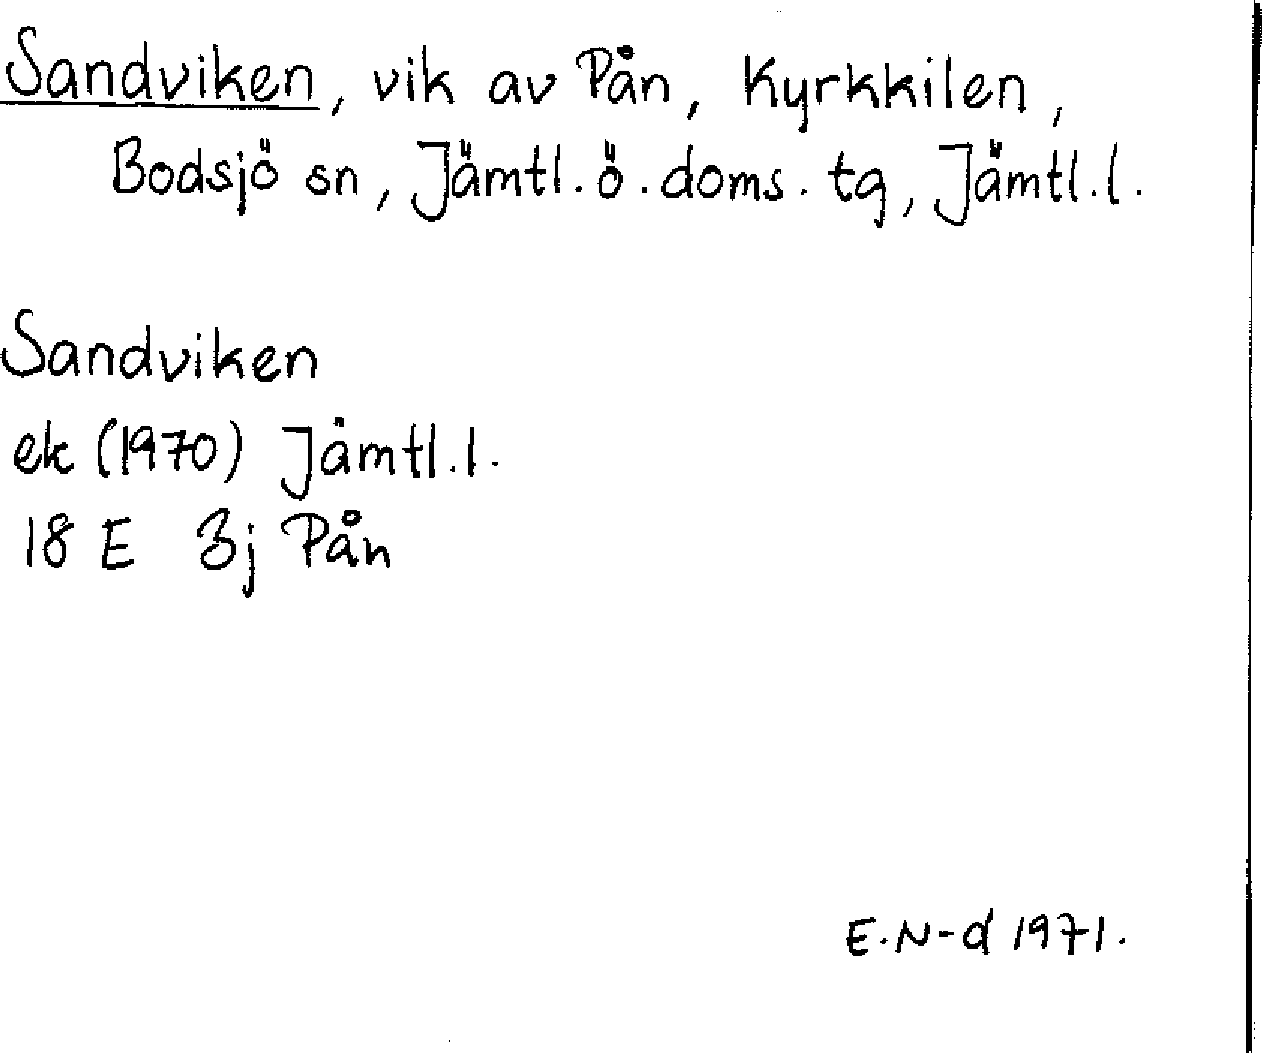 Sandviken, vik av Pån, Kyrkkilen,
Bodsjö sn, Jämtl.ö.doms.tg, Jämtl.l.
Sandviken
ek (1970) Jämtl.l.
18 E 3j Pån
E.N-d 1971.